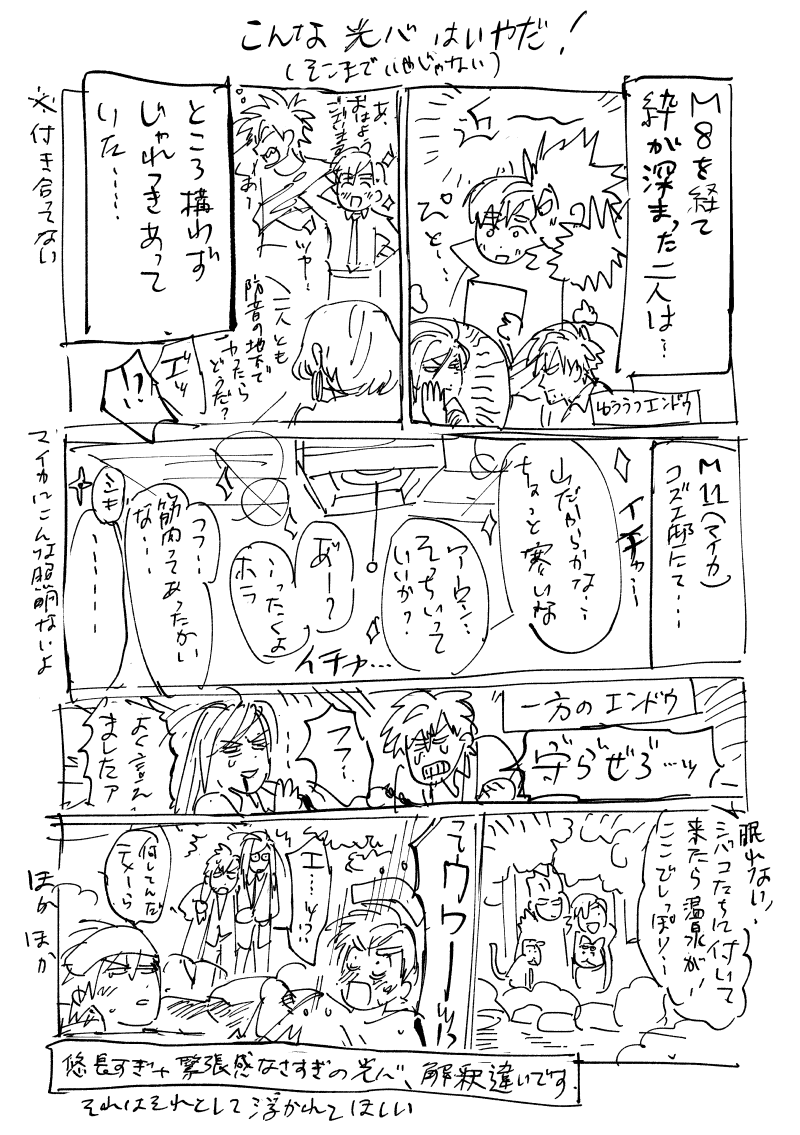 こんな光バはいやだ!
(そこまでいやじゃない)
M8を経て
絆が深まった二人は…
ぴと…
ゆううつエンドウ
あ、
おはよう
ございます
あー
ツヤ…
ところ構わず
じゃれつきあって
いた……
※付き合ってない
二人とも
防音の地下で
やったら
どうだ?
エッ
!?
M11(マイカ)
コズエ邸にて…
イチャ…
山だからかな…
ちょっと寒いな
そっちいって
いいか?
あ゛ー?
…ったくよ
ホラ
イチャ…
フフ…
筋肉ってあったかい
な…
シキ
………
マイカにこんな照明ないよ
一方のエンドウ
守らせろ…ッ
フフ…
よく言え
ましたァ
眠れない
シバコたちに付いて
来たら温泉が!
ここでしっぽり…
ウワーッ
エ…ッ!?
何してんだ
テメーら
ほか
ほか
悠長すぎ+緊張感なさすぎの光バ、解釈違いです。
それはそれとして浮かれてほしい